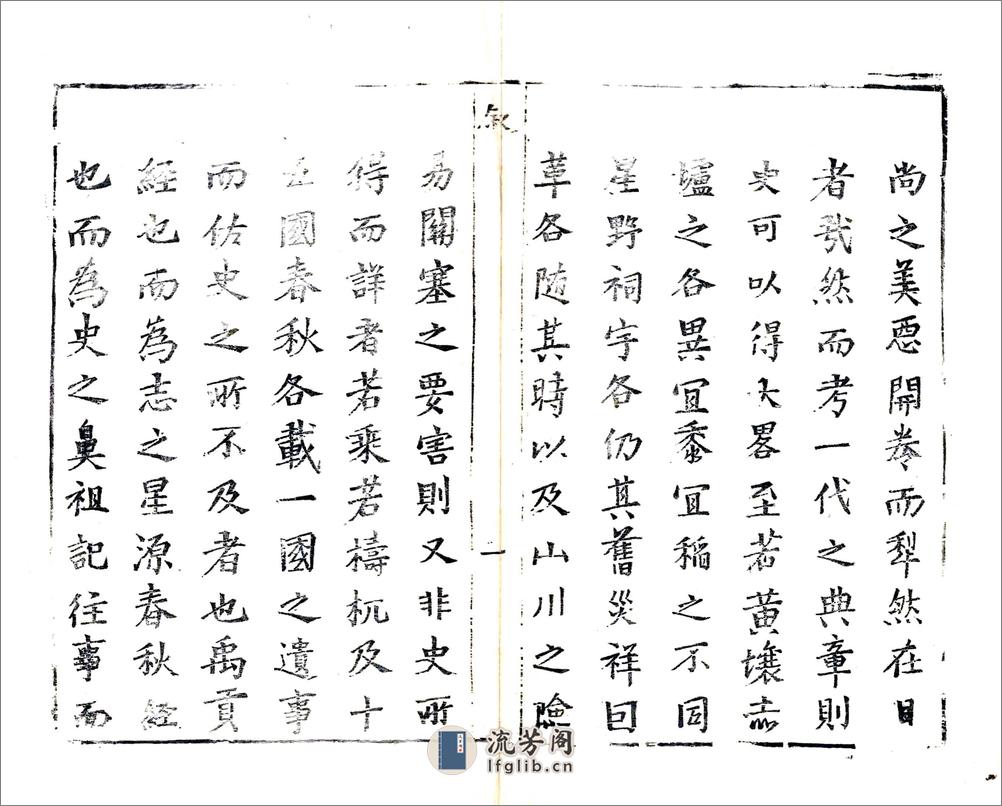 尚之美惡開卷而犁然在目
者哉然而考一代之典章則
史可以得大畧至若黃壤赤
壚之各異宜黍宜稲之不同
星野祠宇各仍其舊災祥囙
革各随其時以及山川之險
叙
一
易關塞之要害則又非史所
得而詳者若乘若檮杌及十
五國春秋各載一國之遺事
而佐史之所不及者也禹貢
經也而為志之星源春秋經
也而為史之鼻祖記往事而
流芳阁
lfglib.cn